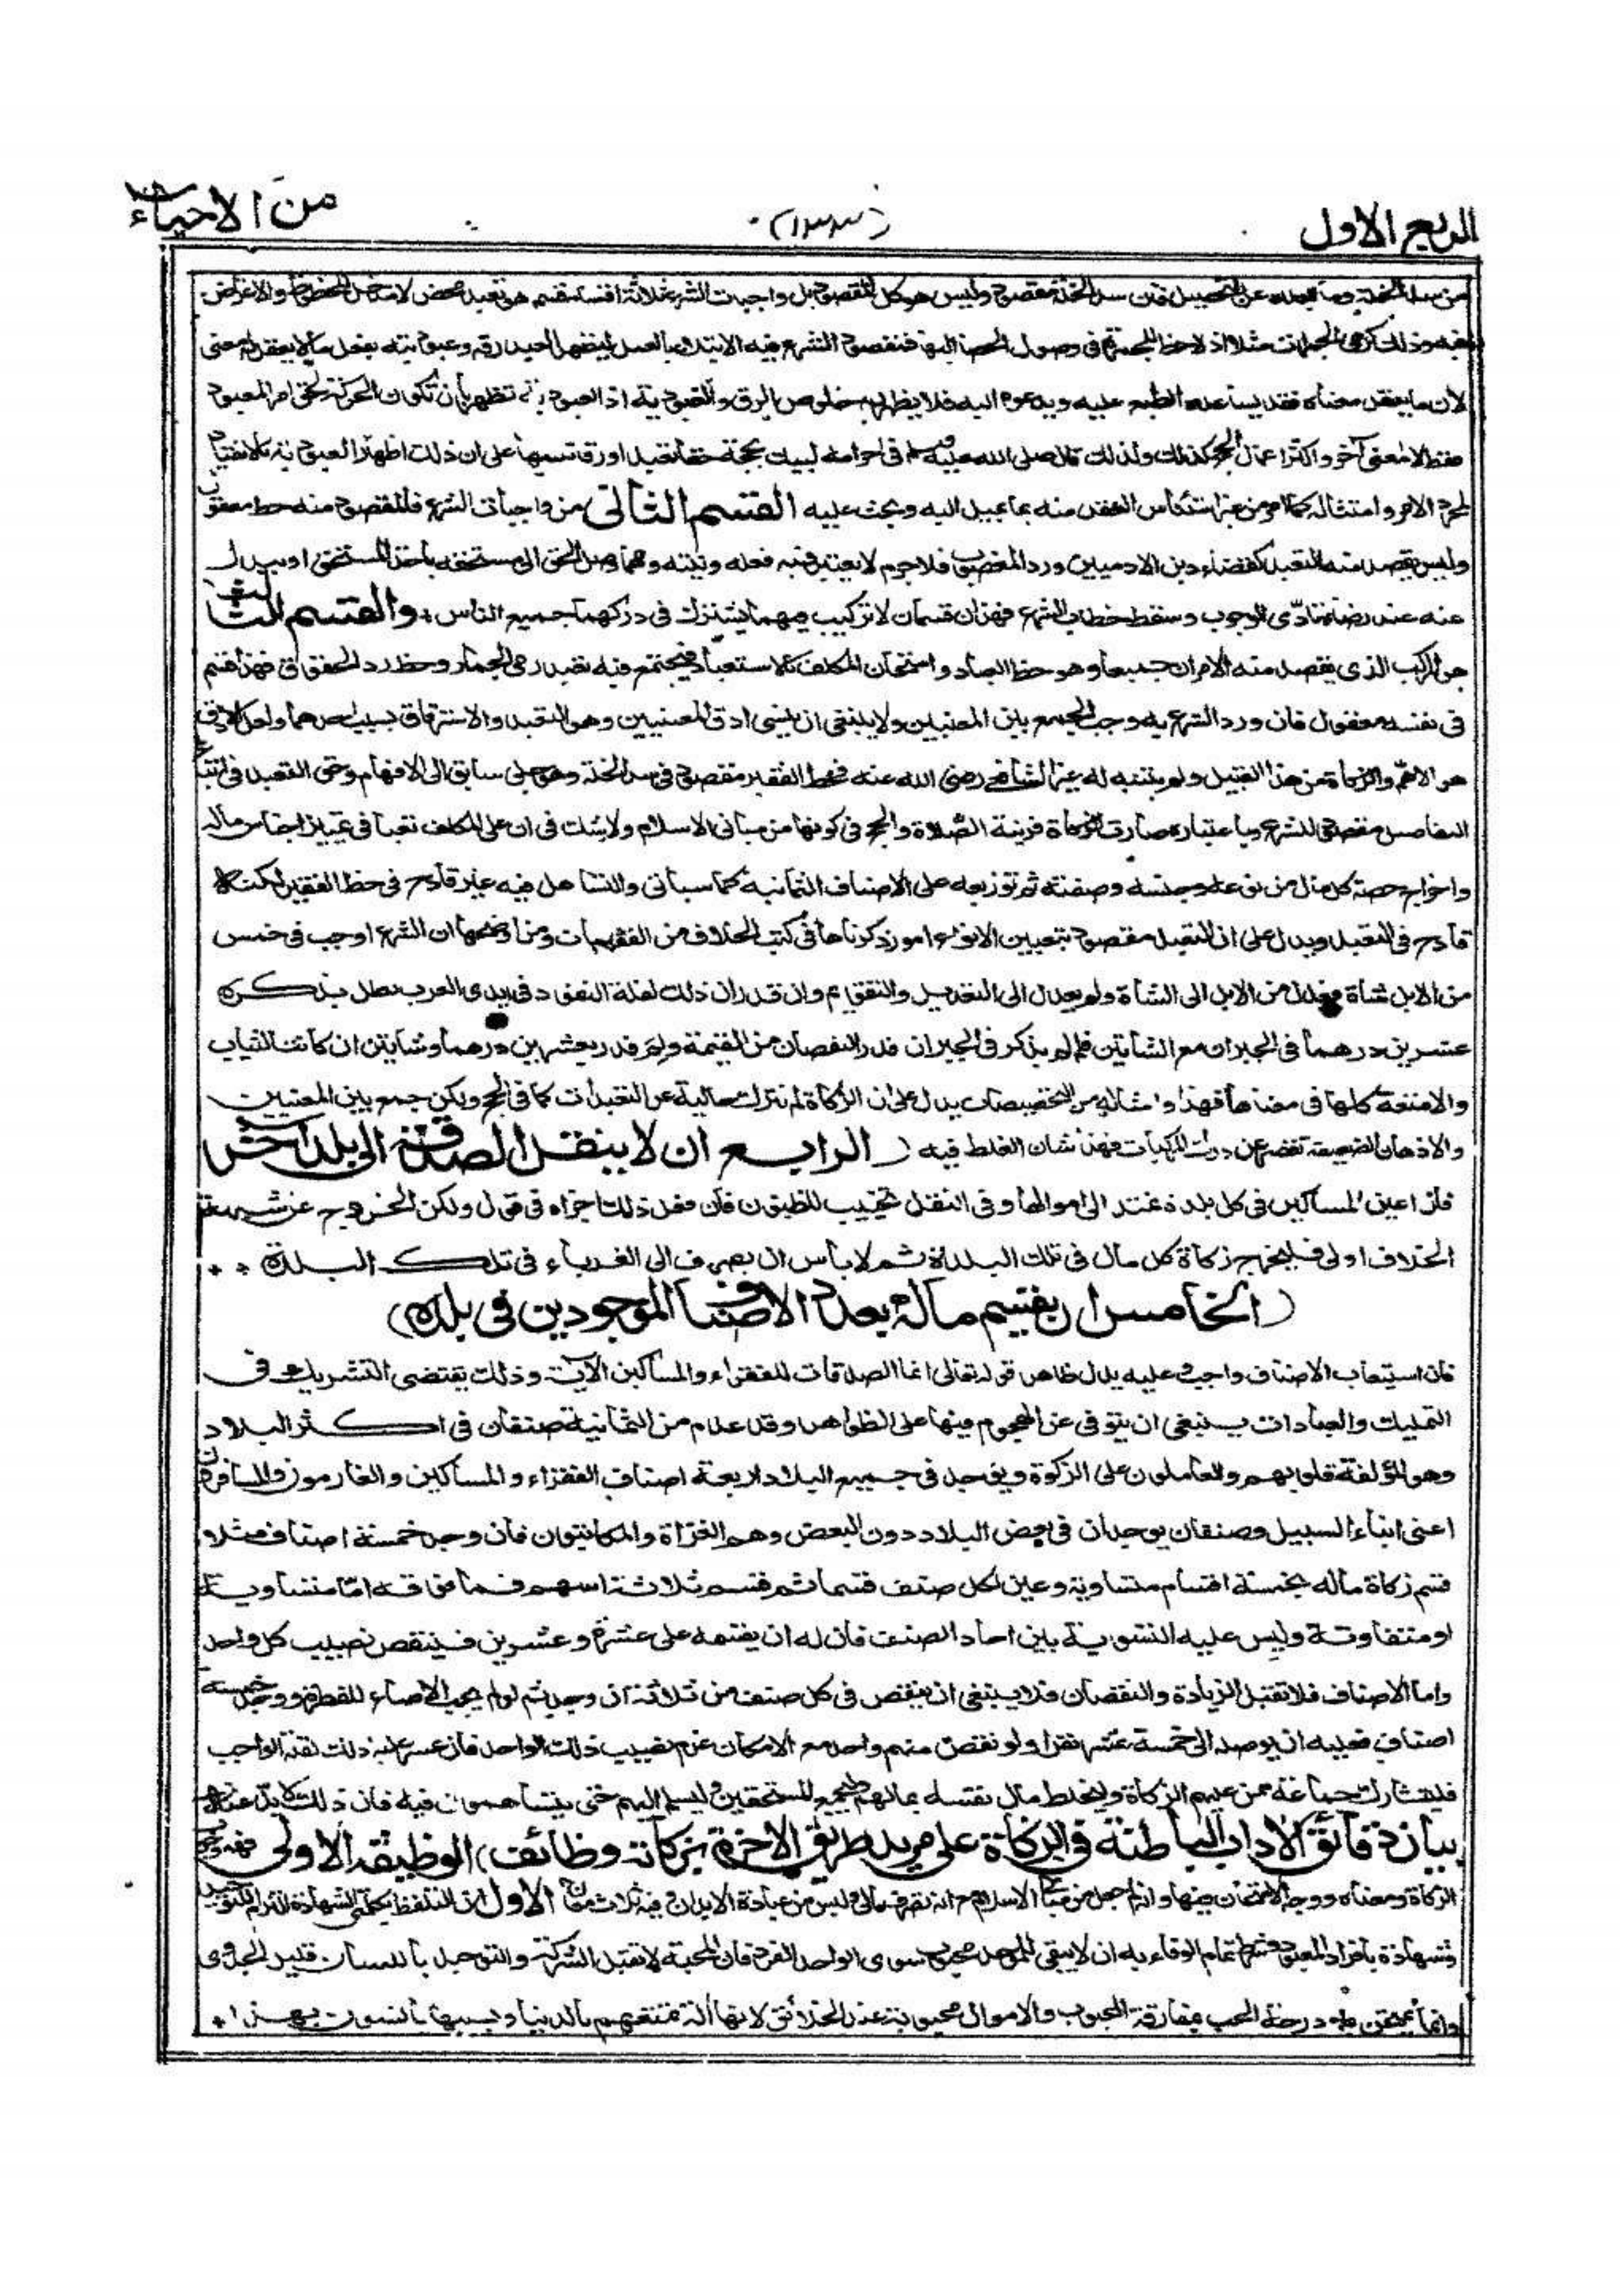 الربع الاول
(١٣٣)
من الاحياء
من سد الخلة وما ابعده عن التحصيل فان سد الخلة مقصود وليس هو كل المقصود بل واجبات الشرع ثلاثة اقسام قسم هو تعبد محض لا مدخل للحظوظ والاغراض
فيه وذلك كرمى الجمرات مثلا اذ لاحظ للجمرة فى وصول الحصا اليها فمقصود الشرع فيه الابتداء بالعمل ليظهر العبد رقه وعبوديته بفعل مالا يعقل له معنى
لان ما يعقل معناه فقد يساعده الطبع عليه ويدعوه اليه فلا يظهر به خلوص الرق والعبودية اذ العبودية تظهر بأن تكون الحركة لحق امر المعبود
فقط لا لمعنى آخر واكثر اعمال الحج كذلك ولذلك قال صلى الله عليه وسلم فى احرامه لبيك بحجة حقا تعبدا ورقا تنبيها على ان ذلك اظهار العبودية بالانقياد
لمجرد الامر وامتثاله كما امر من غير استئناس العقل منه بما يميل اليه ويحث عليه القسم الثانى من واجبات الشرع فالمقصود منه حظ معقول
وليس يقصد منه التعبد كقضاء دين الادميين ورد المغصوب فلا جرم لا يعتبر فيه فعله ونيته ومهما وصل الحق الى مستحقه باخذ المستحق او ببدل
عنه عند رضاه تأدى الوجوب وسقط خطاب الشرع فهذان قسمان لا تركيب فيهما يشترك فى دركهما جميع الناس والقسم الثالث
هو المركب الذى يقصد منه الامران جميعا وهو حظ العباد وامتحان المكلف بالاستعباد فيجتمع فيه تعبد رمى الجمار وحظ رد الحقوق فهذا قسم
فى نفسه معقول فان ورد الشرع به وجب الجمع بين المعنيين ولا ينبغى ان ينسى ادق المعنيين وهو التعبد والاسترقاق بسبب اجلاهما ولعل الادق
هو الاهم والزكاة من هذا القبيل ولم يتنبه له غير الشافعى رضى الله عنه فحظ الفقير مقصود فى سد الخلة وهو جلى سابق الى الافهام وحق التعبد فى اتباع
التفاصيل مقصود للشرع وباعتباره صارت الزكاة قرينة الصلاة والحج فى كونها من مبانى الاسلام ولا شك فى ان على المكلف تعبا فى تمييز اجناس ماله
واخراج حصة كل مال من نوعه وجنسه وصفته ثم توزيعه على الاصناف الثمانية كما سيأتى والتساهل فيه غير قادح فى حظ الفقير لكنه
قادح فى التعبد ويدل على ان التعبد مقصود بتعيين الانواع امور ذكرناها فى كتب الخلاف من الفقهيات ومن اوضحها ان الشرع اوجب فى خمس
من الابل شاة فعدل من الابل الى الشاة ولم يعدل الى النقدين والتقويم وان قدر ان ذلك لقلة النقود فى ايدى العرب بطل بذكره
عشرين درهما فى الجبران مع الشاتين فلم لم يذكر فى الجبران قدر النقصان من القيمة ولم قدر بعشرين درهما وشاتين ان كانت الثياب
والامتعة كلها فى معناها فهذا وامثاله من التخصيصات يدل على ان الزكاة لم تترك خالية عن التعبدات كما فى الحج ولكن جمع بين المعنيين
والاذهان الضعيفة تقصر عن درك المركبات فهذا شان الغلط فيه (الرابع ان لا ينقل الصدقة الى بلد آخر
فان اعين المساكين فى كل بلدة تمتد الى اموالها وفى النقل تخييب للظنون فان فعل ذلك اجزاه فى قول ولكن الخروج عن شبهة
الخلاف اولى فليخرج زكاة كل مال فى تلك البلدة ثم لا بأس ان يصرف الى الغرباء فى تلك البلدة
(الخامس ان يقسم ماله بعدد الاصناف الموجودين فى بلده)
فان استيعاب الاصناف واجب وعليه يدل ظاهر قوله تعالى انما الصدقات للفقراء والمساكين الآية وذلك يقتضى التشريك فى
التمليك والعبادات ينبغى ان يتوقى عن الهجوم فيها على الظواهر وقد عدم من الثمانية صنفان فى اكثر البلاد
وهو المؤلفة قلوبهم والعاملون على الزكوة ويوجد فى جميع البلاد اربعة اصناف الفقراء والمساكين والغارمون والمسافرون
اعنى ابناء السبيل وصنفان يوجدان فى بعض البلاد دون البعض وهم الغزاة والمكاتبون فان وجد خمسة اصناف مثلا
قسم زكاة ماله بخمسة اقسام متساوية وعين لكل صنف قسما ثم قسم ثلاثة اسهم فما فوقه اما متساوية
او متفاوتة وليس عليه التسوية بين احاد الصنف فان له ان يقسمه على عشرة وعشرين فينقص نصيب كل واحد
واما الاصناف فلا تقبل الزيادة والنقصان فلا ينبغى ان ينقص فى كل صنف من ثلاثة ان وجد ثم لو لم يجب الا صاع للفطرة ووجد خمسة
اصناف فعليه ان يوصله الى خمسة عشر نفرا ولو نقص منهم واحد مع الامكان غرم نصيب ذلك الواحد فان عسر عليه ذلك لقلة الواجب
فليتشارك جماعة ممن عليهم الزكاة وليخلط مال نفسه بمالهم وليجمع المستحقين وليسلم اليهم حتى يتساهموا فيه فان ذلك لا بد منه
بيان دقائق الاداب الباطنة فى الزكاة على مريد طريق الاخرة بزكاته وظائف) الوظيفة الاولى فهم وجوب
الزكاة ومعناه ووجه الامتحان فيها وانه لم جعل من مبانى الاسلام مع انه تصرف مالى وليس من عبادة الابدان فيه ثلاث معان الاول ان التلفظ بكلمتى الشهادة التزام للتوحيد
وشهادة بأفراد المعبود وشرط تمام الوفاء به ان لا يبقى للموحد محبوب سوى الواحد الفرد فان المحبة لا تقبل الشركة والتوحيد باللسان قليل الجدوى
وانما يمتحن به درجة المحب بمفارقة المحبوب والاموال محبوبة عند الخلائق لانها آلة تمتعهم بالدنيا وبسببها يأنسون بهذا